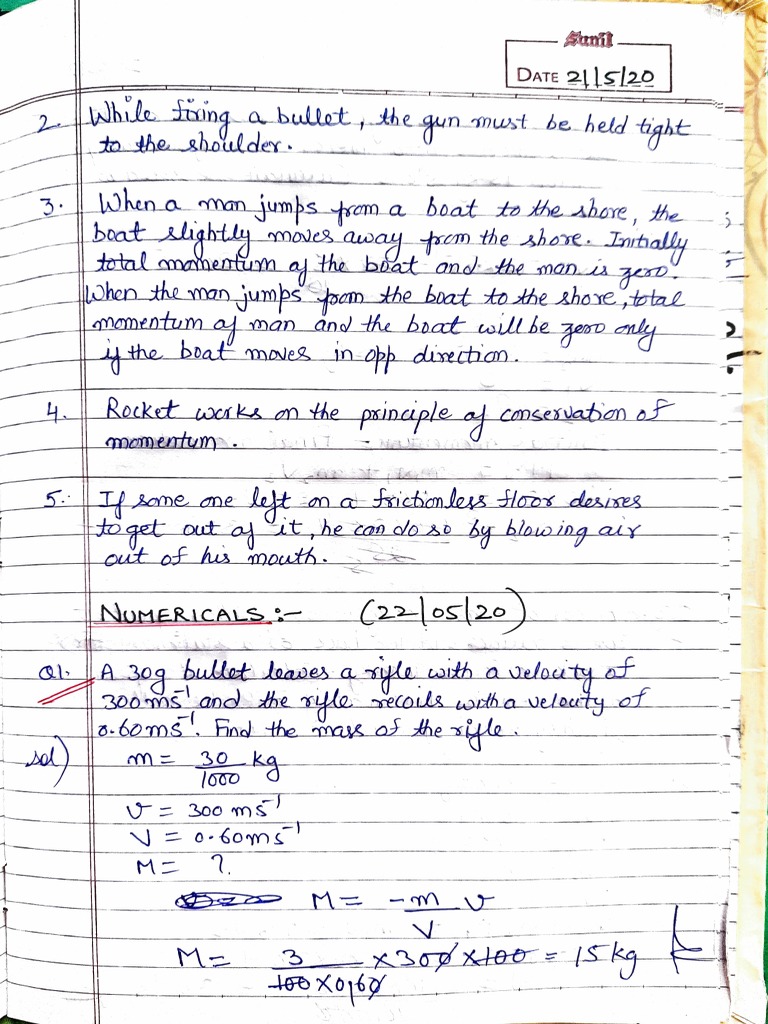 Sunil
DATE 21/5/20
2. While firing a bullet, the gun must be held tight
to the shoulder.
3. When a man jumps from a boat to the shore, the
boat slightly moves away from the shore. Initially
total momentum of the boat and the man is zero.
When the man jumps from the boat to the shore, total
momentum of man and the boat will be zero only
if the boat moves in opp direction.
4. Rocket works on the principle of conservation of
momentum.
5. If some one left on a frictionless floor desires
to get out of it, he can do so by blowing air
out of his mouth.
NUMERICALS :- (22/05/20)
Q1. A 30g bullet leaves a rifle with a velocity of
300 ms⁻¹ and the rifle recoils with a velocity of
0.60 ms⁻¹. Find the mass of the rifle.
sol) m = 30/1000 kg
v = 300 ms⁻¹
V = 0.60 ms⁻¹
M = ?
M = -m/V v
M = 3/100×0.60 × 300 × 100 = 15 kg